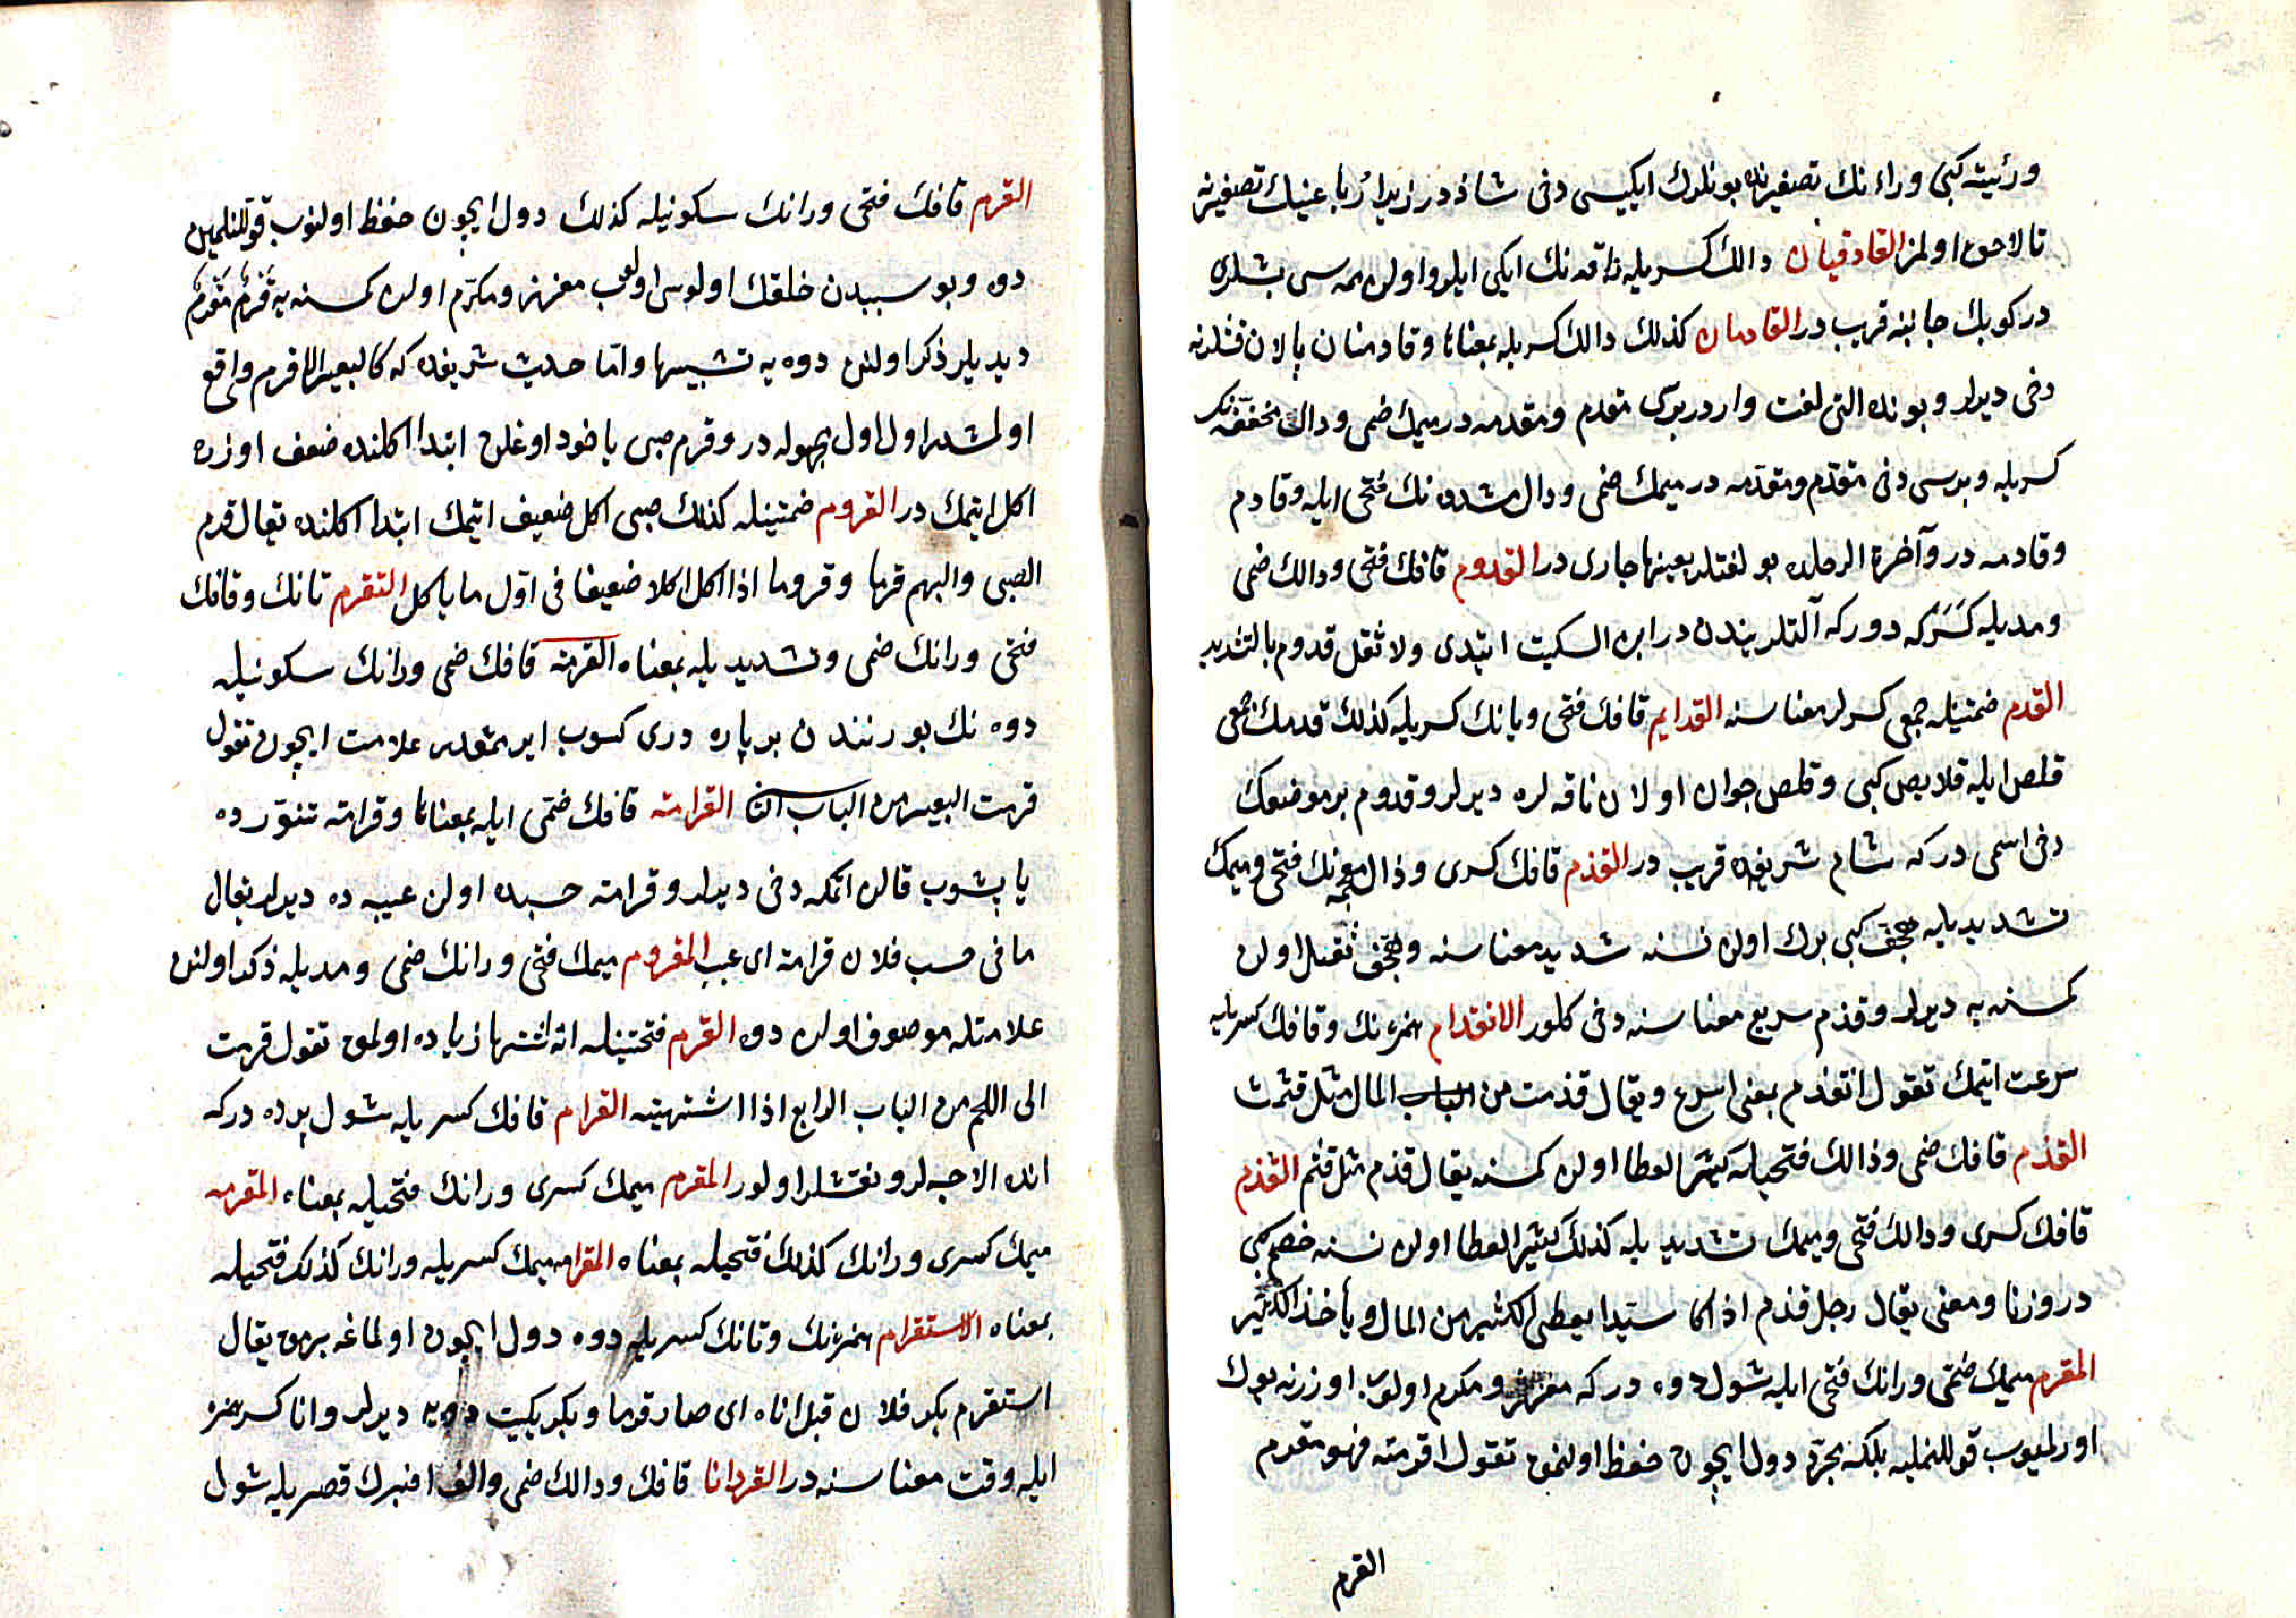 ورئيته كبى وراء نك تصغيرنده بونلرك ايكيسى دخى شاذدر زيرا رباعينك تصغيرنه
تا لاحق اولمز القادمان دالك كسريله ناقه نك ايكى ايلرو اولن ممه سى بشلرى
دركوبك جانبنه قريب در القادمان كذلك دالك كسريله بمعناها وقادمتان پالان قشلرنه
دخى ديرلر وبونده التى لغت واردر برى مقدم ومقدمه در ميمك ضمى ودال مخففه نك
كسريله وبرسى دخى مقدّم ومقدّمه در ميمك ضمى ودال مشدده نك فتحى ايله وقادم
وقادمه در وآخرة الرحلده بو لغتلر بعينها جارى در القدوم قافك فتحى ودالك ضمى
ومديله كسر كه دوركر آلتلريندن در ابن السكيت ايتدى ولا تقل قدوم بالتشديد
القدم ضمتينله جمعى كسرلر معناسنه القدايم قافك فتحى ويانك كسريله كذلك قدمك جمعى
قلص ايله قلايص كبى وقلص جوان اولان ناقه لره ديرلر وقدوم بر موضعك
دخى اسمى در كه شام شريفه قريب در القذم قافك كسرى وذال معجمه نك فتحى وميمك
تشديديله هجف كبى برك اولن نسنه شديد معناسنه وهجف ثقيل اولن
كمسنه يه ديرلر وقذم سريع معناسنه دخى كلور الانقذام همزه نك وقافك كسريله
سرعت ايتمك تقول انقذم بمعنى اسرع ويقال قذمت من المال مثل قثمت
القذم قافك ضمى وذالك فتحيله كثير العطا اولن كمسنه يقال قذم مثل قثم القذم
قافك كسرى ودالك فتحى وميمك تشديديله كذلك كثير العطا اولن نسنه خضم كبى
در وزنا ومعنى يقال رجل قذم اذا كان سيّدا يعطى الكثير من المال ويأخذ الكثير
المقرم ميمك ضمى ورانك فتحى ايله شول دوه در كه معزز ومكرم اولوب اوزرنه يوك
اورلميوب قوللنمليه بلكه مجرّد دول ايچون حفظ اولنمق تقول اقرمته فهو مقرم
القرم
القرم قافك فتحى ورانك سكونيله كذلك دول ايچون حفظ اولنوب قوللنلمين
دوه وبو سببدن خلقك اولوسى اولوب معزز ومكرّم اولن كمسنه يه قرم مقرم
ديديلر ذكر اولنن دوه يه تشبيها وامّا حديث شريفده كه كالبعير الاقرم واقع
اولمشدر اول اول مجهوله در وقرم صبى ياخود اوغلن ابتدا اكلنده ضعف اوزره
اكل ايتمك در القروم ضمتينله كذلك صبى اكل ضعيف ايتمك ابتدا اكلنده تقال قرم
الصبى والبهم قرما وقروما اذا اكل اكلا ضعيفا فى اوّل ما ياكل التقرم تانك وقافك
فتحى ورانك ضمى وتشديديله بمعناه القرمة قافك ضمى ورانك سكونيله
دوه نك بورنندن بر پاره درى كسوب ايرمقدر علامت ايچون تقول
قرمت البعير من الباب الثا القرامة قافك ضمّى ايله بمعناها وقرامة تنّورده
ياپشوب قالن اتمكه دخى ديرلر وقرامة حسبده اولن عيبه ده ديرلر يقال
ما فى حسب فلان قرامة اى عيب المقروم ميمك فتحى ورانك ضمى ومديله ذكر اولنن
علامتله موصوف اولن دوه القرم فتحتينله اته اشتها زياده اولمق تقول قرمت
الى اللحم من الباب الرابع اذا اشتهيته القرام قافك كسريله شول پرده در كه
انده الاجه لر ونقشلر اولور المقرم ميمك كسرى ورانك فتحيله بمعناه المقرمه
ميمك كسرى ورانك كذلك فتحيله بمعناه المقرام ميمك كسريله ورانك كذلك فتحيله
بمعناه الاستقرام همزه نك وتانك كسريله دوه دول ايچون اولماغه يرمق يقال
استقرم بكر فلان قبل اناه اى صار قرما وبكر يكيت دوه يه ديرلر وانا كسر همزه
ايله وقت معناسنه در القردانا قافك ودالك ضمى والف اخيرك قصريله شول